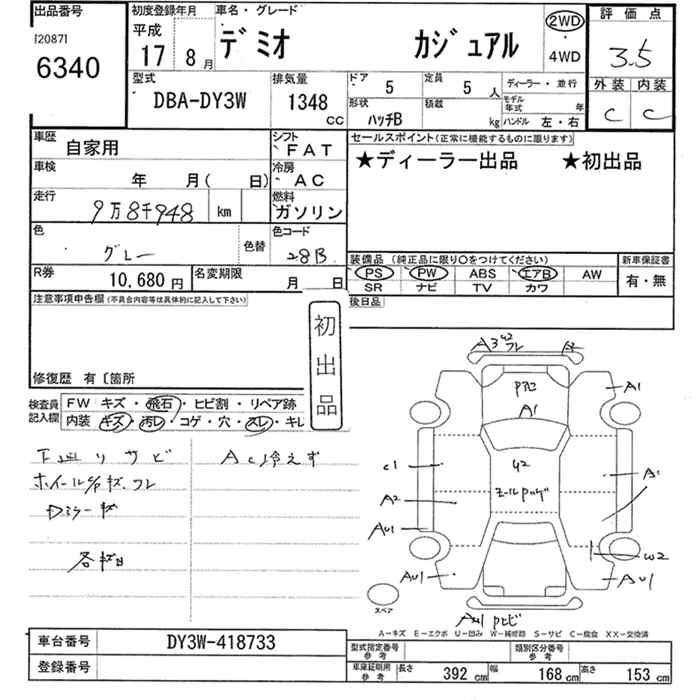 出品番号 初度登録年月 車名・グレード 評価点
[20871
6340
平成
17 8月
デミオ カジュアル
2WD
4WD
3.5
外装 内装
C C
型式 DBA-DY3W
排気量 1348 CC
ドア 5
定員 5人
ディーラー・並行
形状 ハッチB
積載 kg
モデル年式 年
ハンドル 左・右
車歴 自家用
シフト FAT
セールスポイント(正常に機能するものに限ります)
★ディーラー出品 ★初出品
車検 年 月( 日)
冷房 AC
走行 9万8千948 km
燃料 ガソリン
色 グレー
色替
色コード 28B
装備品 (純正品に限り〇をつけてください)
新車保証書
PS PW ABS エアB AW
SR ナビ TV カワ
有・無
R券 10,680円
名変期限 月 日
後日品
注意事項申告欄(不具合内容等は具体的に記入して下さい)
初出品
修復歴 有〔箇所
検査員記入欄
FW キズ・飛石・ヒビ割・リペア跡
内装 キズ・汚レ・コゲ・穴・スレ・キレ
下廻リサビ
AC冷えず
ホイールC/Pキズ、ワレ
Dミラーキズ
A1
A1
C1
A2
A1
W2
スペア
A-キズ E-エクボ U-凹み W-補修跡 S-サビ C-腐食 XX-交換済
車台番号 DY3W-418733
登録番号
型式指定番号 参考
類別区分番号 参考
車庫証明用 参考
長さ 392 cm 幅 168 cm 高さ 153 cm